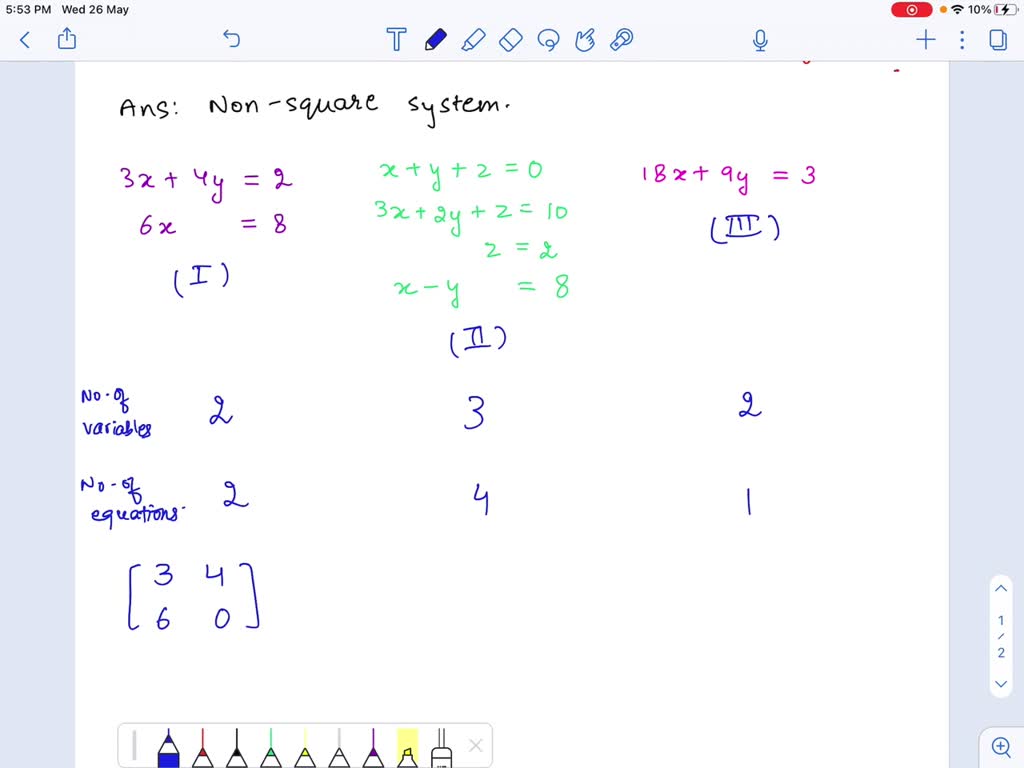 5:53 PM Wed 26 May
10%
Ans: Non-square system.
3x + 4y = 2
6x = 8
(I)
x + y + z = 0
3x + 2y + z = 10
z = 2
x - y = 8
(II)
18x + 9y = 3
(III)
No. of variables 2 3 2
No. of equations. 2 4 1
[3 4
6 0]
1
/
2